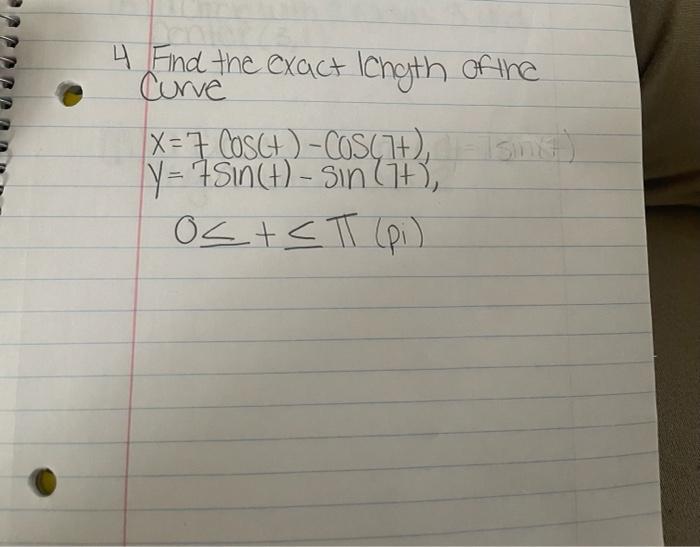 4 Find the exact length of the
Curve
x=7 Cos(t)-Cos(7t),
y=7Sin(t)-Sin(7t),
0≤t≤π (pi)